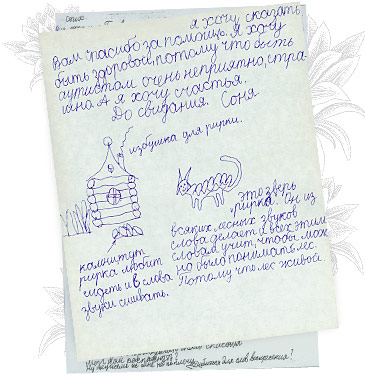 я хочу сказать
Вам спасибо за помощь. Я хочу
быть здоровой, потому что быть
аутистом очень неприятно, стра-
шно. А я хочу счастья.
До свидания. Соня
избушка для рирки.
это зверь
"рирка". Он из
всяких лесных звуков
слова делает и всех этим
словам учит, чтобы мож
но было понимать лес.
Потому что лес живой.
рирка любит
сидеть и в слова
звуки сшивать.